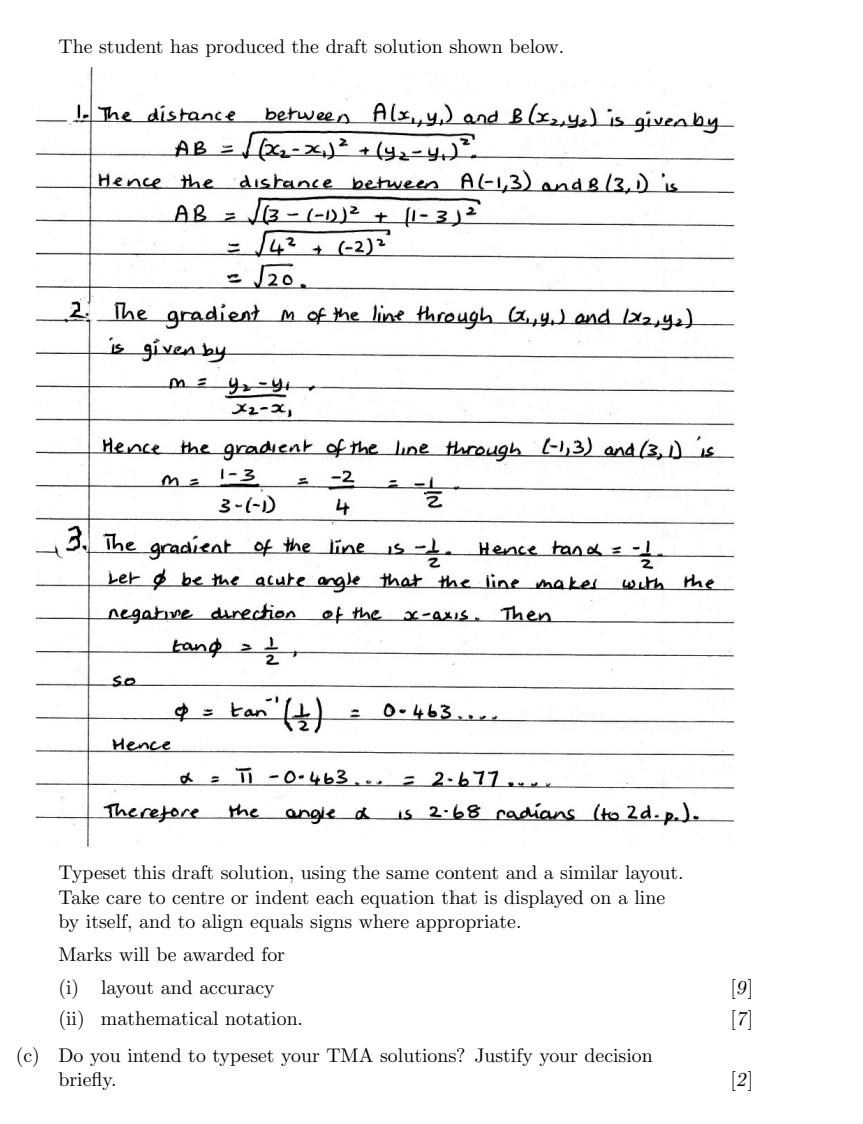 The student has produced the draft solution shown below.
1. The distance between A(x₁,y₁) and B(x₂,y₂) is given by
AB = √((x₂-x₁)² + (y₂-y₁)²).
Hence the distance between A(-1,3) and B(3,1) is
AB = √((3-(-1))² + (1-3)²)
= √(4² + (-2)²)
= √20.
2. The gradient m of the line through (x₁,y₁) and (x₂,y₂)
is given by
m = (y₂-y₁)/(x₂-x₁).
Hence the gradient of the line through (-1,3) and (3,1) is
m = (1-3)/(3-(-1)) = -2/4 = -1/2.
3. The gradient of the line is -1/2. Hence tan α = -1/2.
Let φ be the acute angle that the line makes with the
negative direction of the x-axis. Then
tan φ = 1/2,
so
φ = tan⁻¹(1/2) = 0.463....
Hence
α = π - 0.463... = 2.677....
Therefore the angle α is 2.68 radians (to 2d.p.).
Typeset this draft solution, using the same content and a similar layout.
Take care to centre or indent each equation that is displayed on a line
by itself, and to align equals signs where appropriate.
Marks will be awarded for
(i) layout and accuracy [9]
(ii) mathematical notation. [7]
(c) Do you intend to typeset your TMA solutions? Justify your decision
briefly. [2]